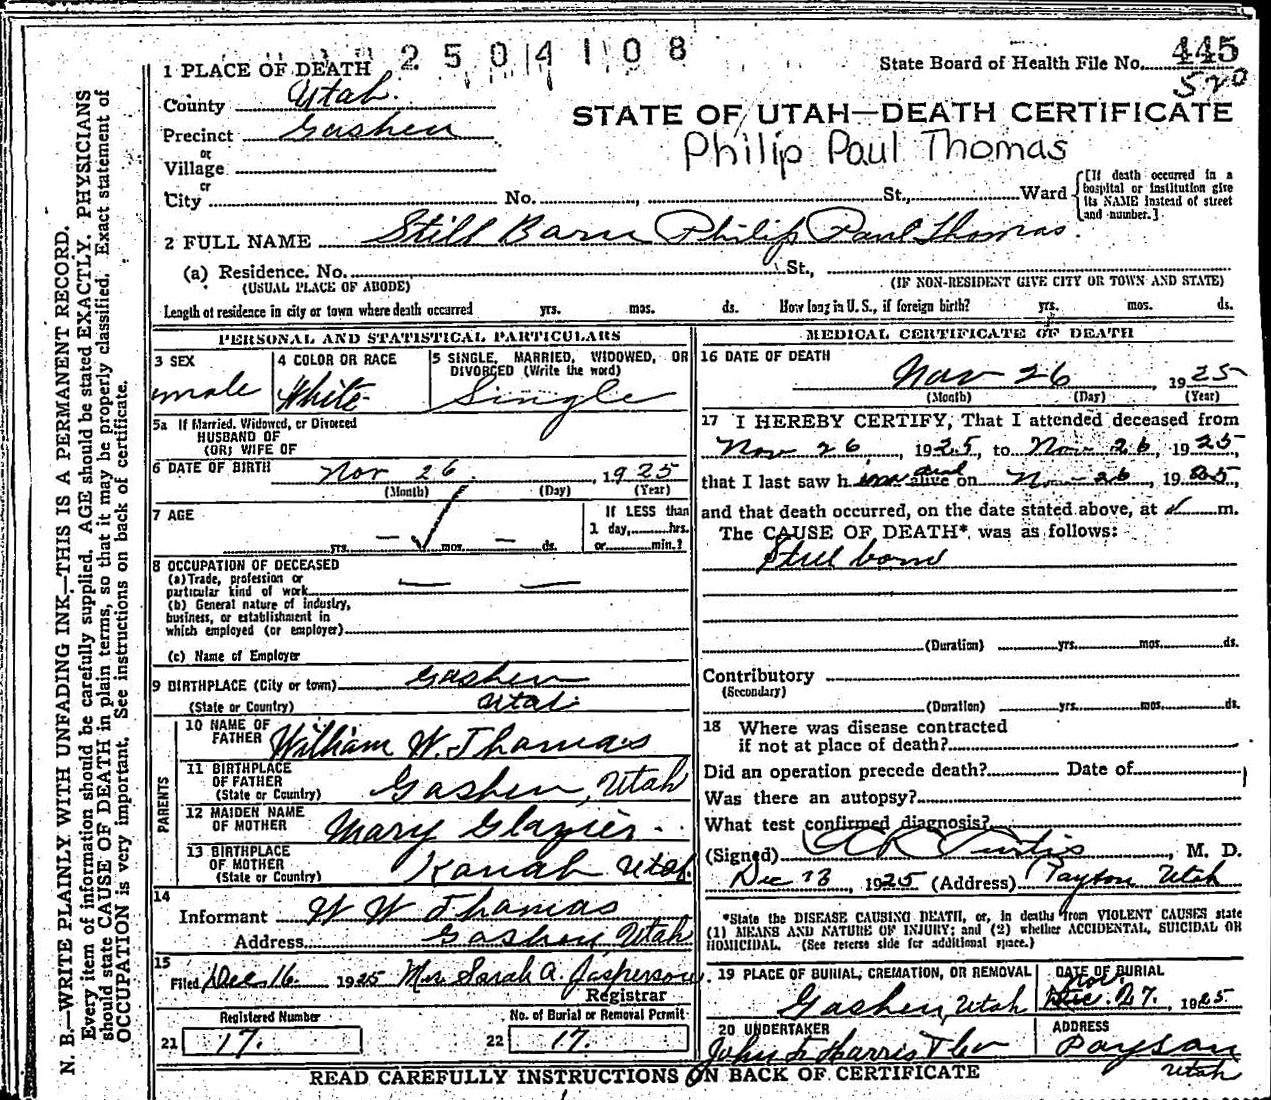 2504108
State Board of Health File No. 445
520
1 PLACE OF DEATH
County Utah.
STATE OF UTAH—DEATH CERTIFICATE
Precinct Goshen
Philip Paul Thomas
or
Village
or
City No. , St., Ward
[If death occurred in a hospital or institution give its NAME instead of street and number.]
2 FULL NAME Still Born Philip Paul Thomas.
(a) Residence. No. St.,
(USUAL PLACE OF ABODE) (IF NON-RESIDENT GIVE CITY OR TOWN AND STATE)
Length of residence in city or town where death occurred yrs. mos. ds. How long in U.S., if foreign birth? yrs. mos. ds.
PERSONAL AND STATISTICAL PARTICULARS
3 SEX
male
4 COLOR OR RACE
White
5 SINGLE, MARRIED, WIDOWED, OR
DIVORCED (Write the word)
Single
5a If Married, Widowed, or Divorced
HUSBAND OF
(OR) WIFE OF
6 DATE OF BIRTH Nov 26, 1925
(Month) (Day) (Year)
7 AGE
yrs. — mos. — ds.
If LESS than
1 day, hrs.
or min.?
8 OCCUPATION OF DECEASED
(a) Trade, profession or
particular kind of work — —
(b) General nature of industry,
business, or establishment in
which employed (or employer)
(c) Name of Employer
9 BIRTHPLACE (City or town) Goshen
(State or Country) Utah.
PARENTS
10 NAME OF
FATHER William W. Thomas
11 BIRTHPLACE
OF FATHER
(State or Country) Goshen, Utah
12 MAIDEN NAME
OF MOTHER Mary Glazier.
13 BIRTHPLACE
OF MOTHER
(State or Country) Kanab Utah.
14
Informant W W Thomas
Address Goshen, Utah
15
Filed Dec 16. 1925 Mrs Sarah A. Jasperson.
Registrar
Registered Number
21 17.
No. of Burial or Removal Permit
22 17.
MEDICAL CERTIFICATE OF DEATH
16 DATE OF DEATH
Nov 26, 1925
(Month) (Day) (Year)
17 I HEREBY CERTIFY, That I attended deceased from
Nov 26, 1925, to Nov 26, 1925
that I last saw him alive on Nov 26, 1925,
dead
and that death occurred, on the date stated above, at m.
The CAUSE OF DEATH* was as follows:
Still born
(Duration) yrs. mos. ds.
Contributory
(Secondary)
(Duration) yrs. mos. ds.
18 Where was disease contracted
if not at place of death?
Did an operation precede death? Date of
Was there an autopsy?
What test confirmed diagnosis?
(Signed) A R Curtis, M. D.
Dec 13, 1925 (Address) Payson Utah
*State the DISEASE CAUSING DEATH, or, in deaths from VIOLENT CAUSES state
(1) MEANS AND NATURE OF INJURY; and (2) whether ACCIDENTAL, SUICIDAL OR
HOMICIDAL. (See reverse side for additional space.)
19 PLACE OF BURIAL, CREMATION, OR REMOVAL
Goshen, Utah
DATE OF BURIAL
Nov
Dec. 27. 1925
20 UNDERTAKER
ADDRESS
Payson
Utah
READ CAREFULLY INSTRUCTIONS ON BACK OF CERTIFICATE
N. B.—WRITE PLAINLY WITH UNFADING INK—THIS IS A PERMANENT RECORD.
Every item of information should be carefully supplied. AGE should be stated EXACTLY. PHYSICIANS
should state CAUSE OF DEATH in plain terms, so that it may be properly classified. Exact statement of
OCCUPATION is very important. See instructions on back of certificate.